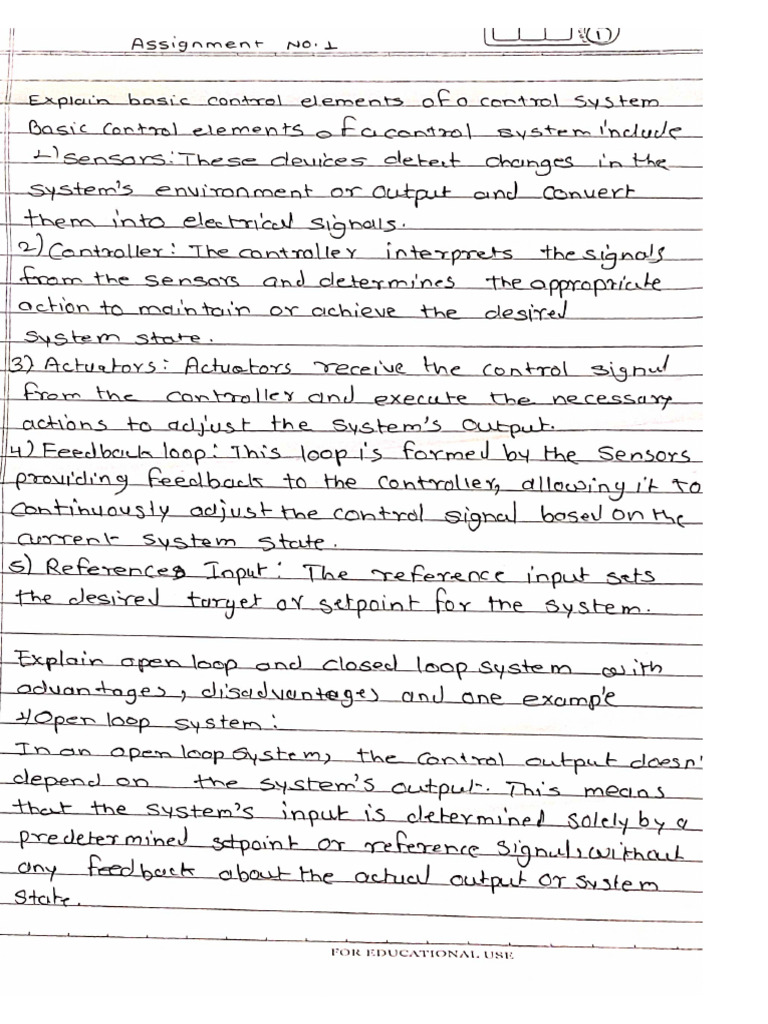 Assignment No. 1
1
Explain basic control elements of a control system
Basic control elements of a control system include
1) Sensors: These devices detect changes in the
system's environment or output and convert
them into electrical signals.
2) Controller: The controller interprets the signals
from the sensors and determines the appropriate
action to maintain or achieve the desired
system state.
3) Actuators: Actuators receive the control signal
from the controller and execute the necessary
actions to adjust the system's output.
4) Feedback loop: This loop is formed by the sensors
providing feedback to the controller, allowing it to
continuously adjust the control signal based on the
current system state.
5) Reference Input: The reference input sets
the desired target or setpoint for the system.
Explain open loop and closed loop system with
advantages, disadvantages and one example
1) Open loop system:
In an open loop system, the control output doesn'
depend on the system's output. This means
that the system's input is determined solely by a
predetermined setpoint or reference signal, without
any feedback about the actual output or system
state.
FOR EDUCATIONAL USE